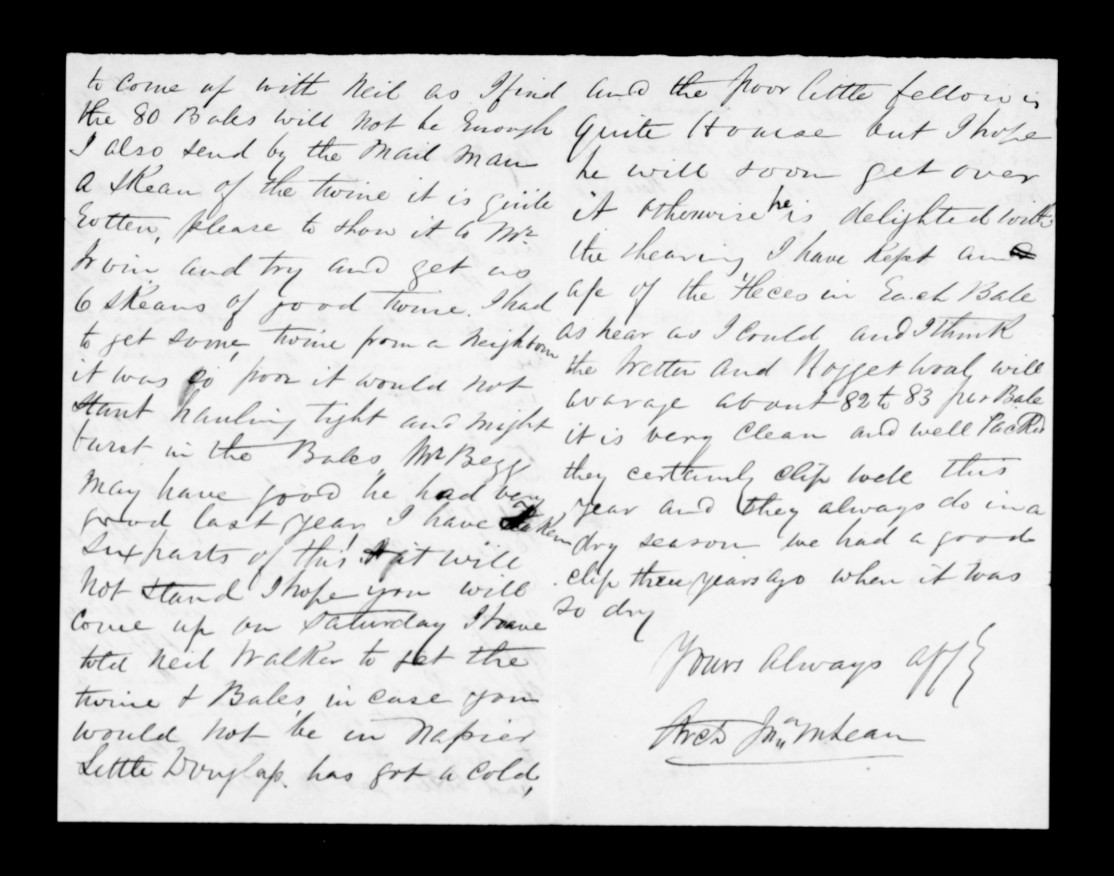 to come up with Neil as I find
the 80 Bales will not be Enough
I also send by the Mail Man
a skean of the twine it is quite
Rotten, please to show it to Mr
Irvin and try and get us
6 skeans of good twine. I had
to get some twine from a Neighbour
it was so poor it would not
stant hauling tight and might
burst in the Bales, Mr Begg
may have good he had very
good last year, I have taken
six parts of this & it will
not stand I hope you will
come up on Saturday I have
told Neil Walker to get the
twine & Bales, in case you
would not be in Napier
Little Douglas. has got a cold,
and the poor little fellow is
quite Hoarse but I hope
he will soon get over
it otherwise he is delighted with
the shearing I have kept an
a/c of the fleces in Each Bale
as near as I could and I think
the Wether and Hogget wool, will
avarage about 82 to 83 per Bale
it is very clean and well Packed
they certainly clip well this
year and they always do in a
dry season we had a good
clip three years ago when it was
so dry
Yours always aff
Archd Jno McLean